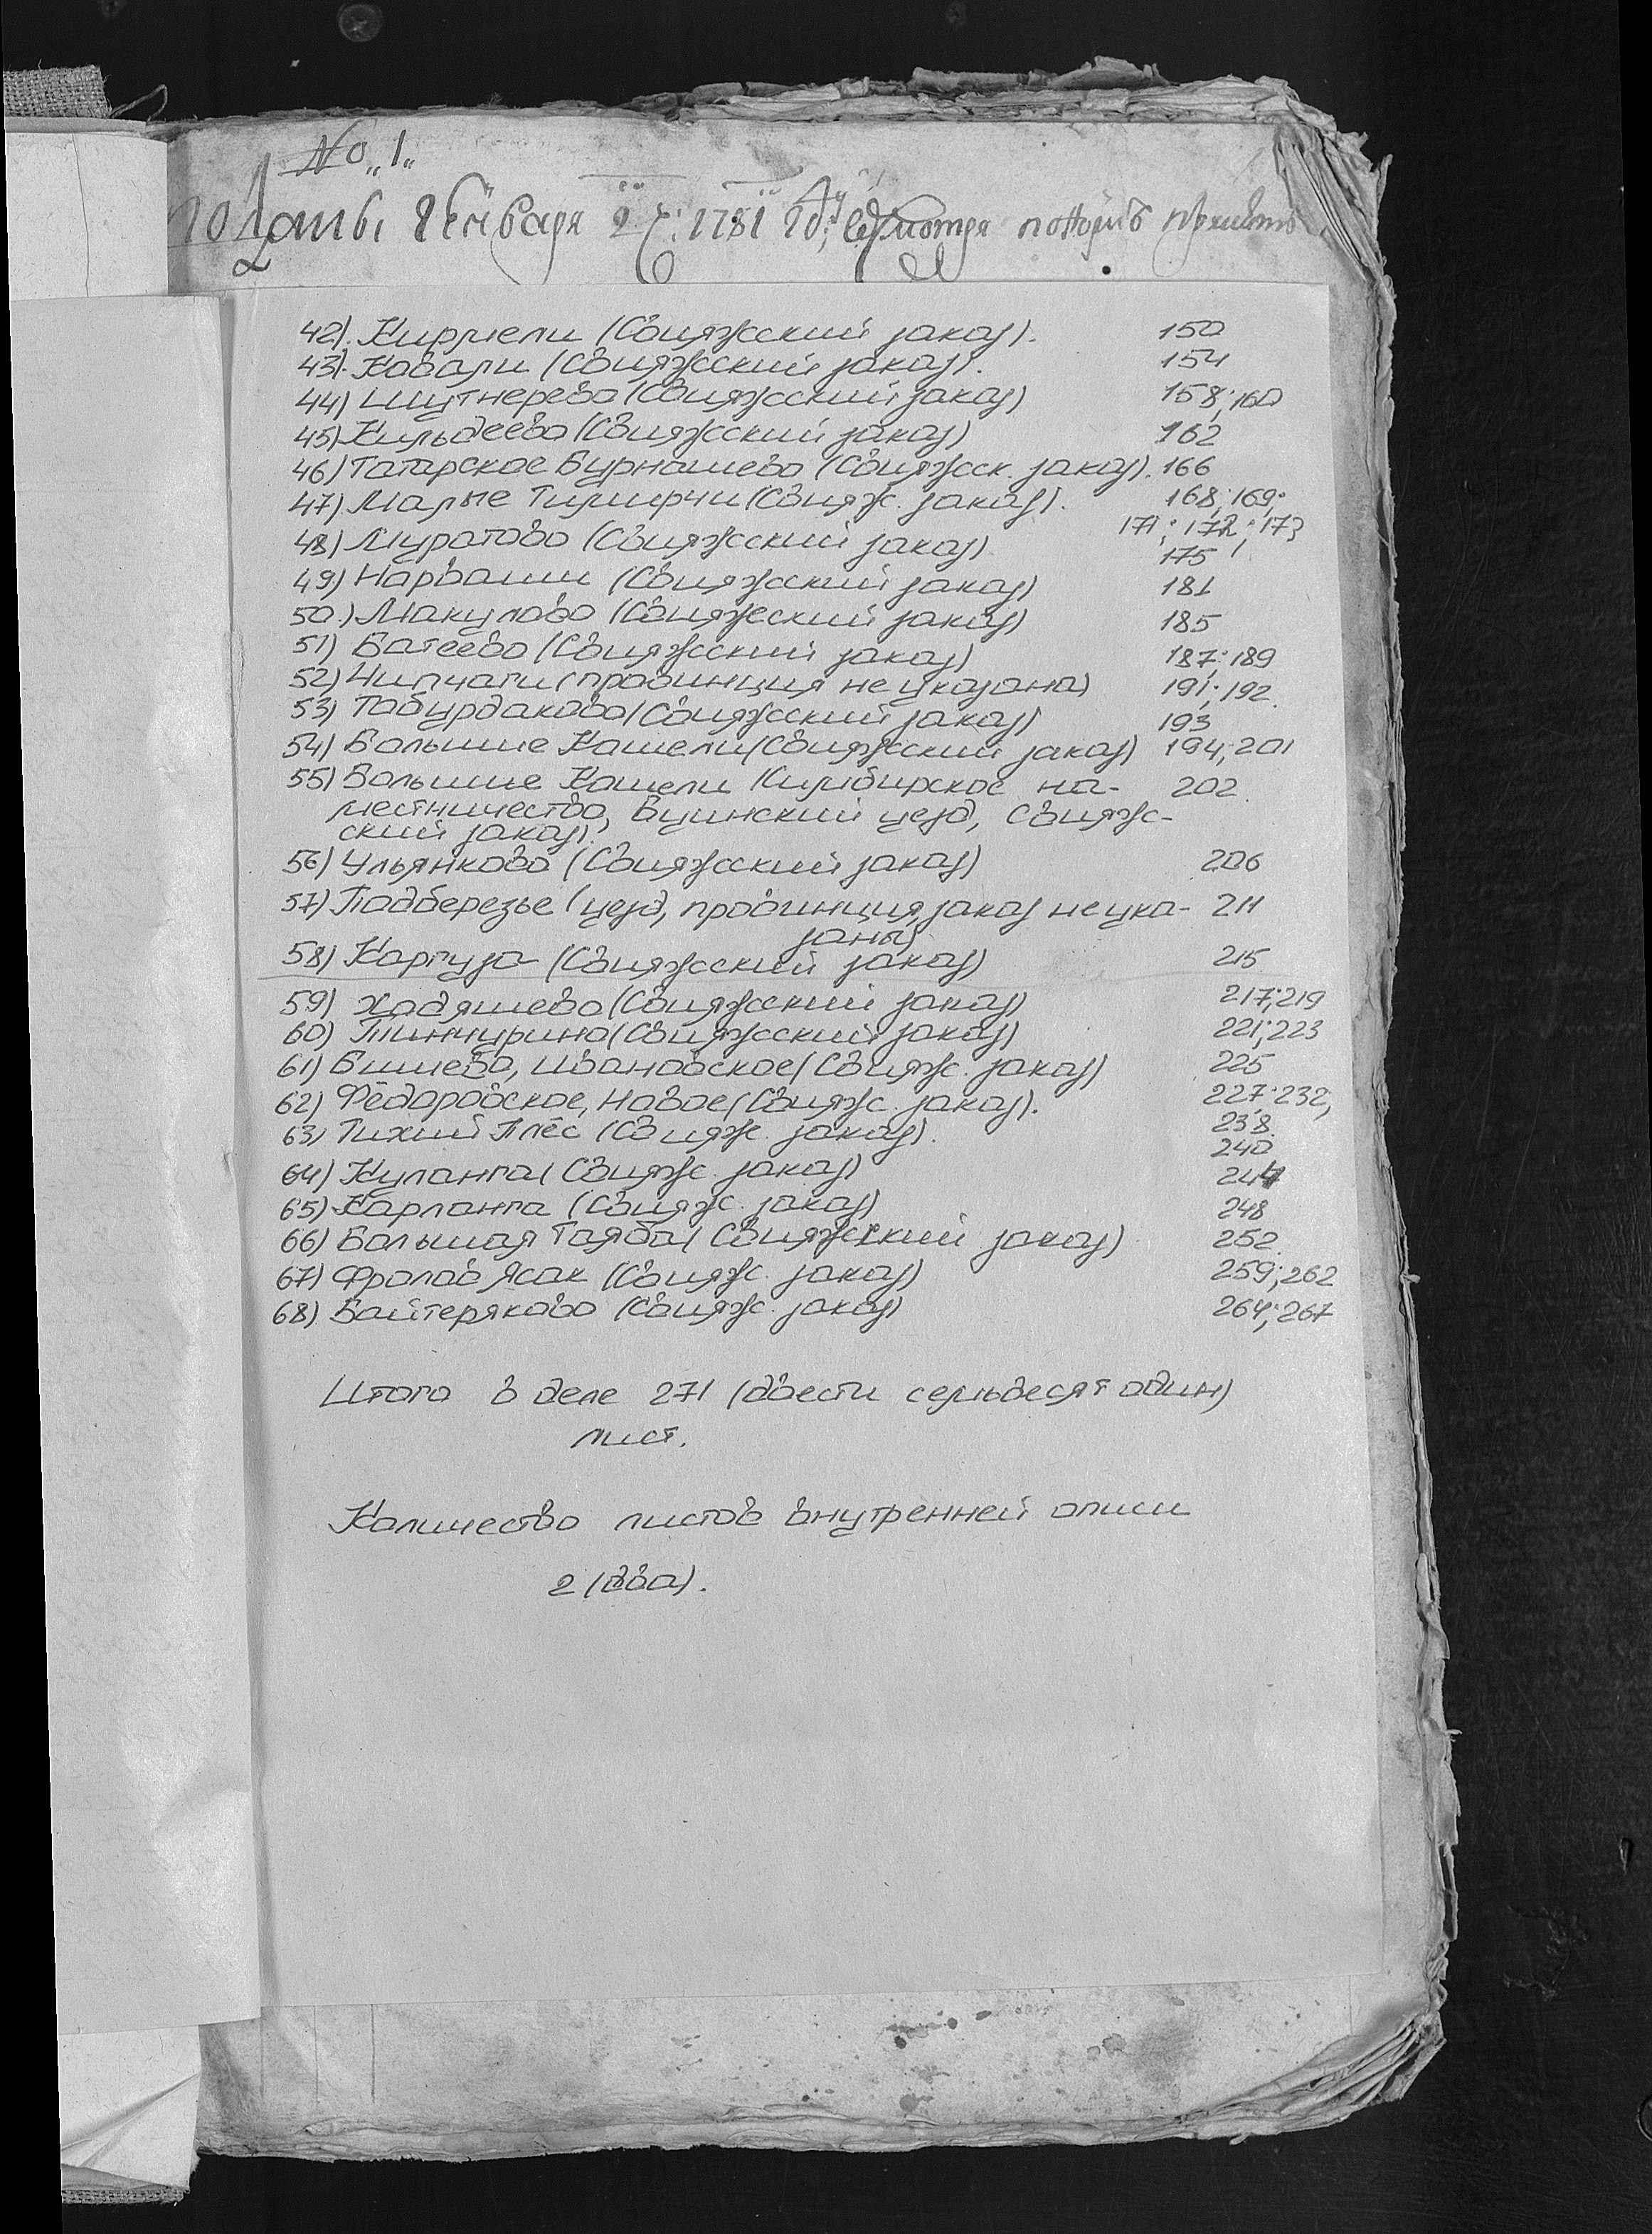 No „1„
поданы Генваря 27: 1781 году
42). Киртели (Свияжский заказ). 150
43). Ковали (Свияжский заказ). 154
44) Шутнерево (Свияжский заказ) 158; 160
45) Кильдеево (Свияжский заказ) 162
46) Татарское Бурнашево (Свияжск. заказ). 166
47) Малые Тимирчи (Свияж. заказ). 168; 169;
171; 172; 173
48) Муратово (Свияжский заказ) 175
49) Нарваши (Свияжский заказ) 181
50.) Макулово (Свияжский заказ) 185
51) Батеево (Свияжский заказ) 187; 189
52) Чипчаги (провинция не указана) 191; 192.
53) Табурдаково (Свияжский заказ) 193
54) Большие Кошели (Свияжский заказ) 194; 201
55) Большие Кошели (Симбирское на- 202.
местничество, Буинский уезд, Свияж-
ский заказ).
56) Ульянково (Свияжский заказ) 206
57) Подберезье (уезд, провинция, заказ не ука- 211
заны)
58) Каргуза (Свияжский заказ) 215
59) Ходяшево (Свияжский заказ) 217; 219
60) Тинчурино (Свияжский заказ) 221; 223
61) Бишево, Ивановское (Свияж. заказ) 225
62) Фёдоровское, Новое (Свияж. заказ). 227; 232;
238.
63) Тихий Плёс (Свияж. заказ). 240
64) Куланга (Свияж. заказ) 244
65) Карланга (Свияж. заказ) 248
66) Большая Таяба (Свияжский заказ) 252.
67) Фролов Ясак (Свияж. заказ) 259; 262
68) Байтеряково (Свияж. заказ) 264; 267
Итого в деле 271 (двести семьдесят один)
лист.
Количество листов внутренней описи
2 (два).